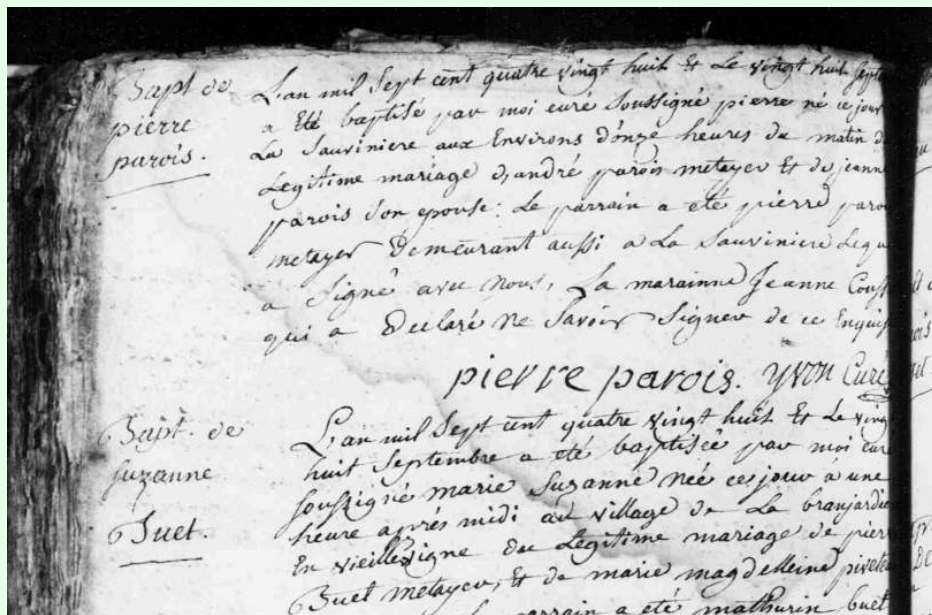 Bapt de
pierre
parois.
L'an mil Sept cent quatre vingt huit Et Le vingt huit Septe
a Eté baptisé par moi curé Soussigné pierre né ce jour
La Sauviniere aux Environs d'onze heures du matin d
Legitime mariage d'andré parois metayer Et de jeanne
parois Son epouse: Le parrain a eté pierre paroi
metayer Demeurant aussi a La Sauviniere Leque
a Signé avec nous, La marainne Jeanne Couss
qui a Declaré ne Savoir Signer de ce Enquis
pierre parois. yvon Curé
Bapt. de
suzanne
Buet.
L'an mil Sept cent quatre vingt huit Et Le ving
huit Septembre a été baptisée par moi cur
soussigné marie Suzanne née ce jour à une
heure après midi au village de La branjardie
En vieillevigne du Legitime mariage de pierr
Buet metayer, Et de marie magdelleine pivete
parrain a été mathurin buet